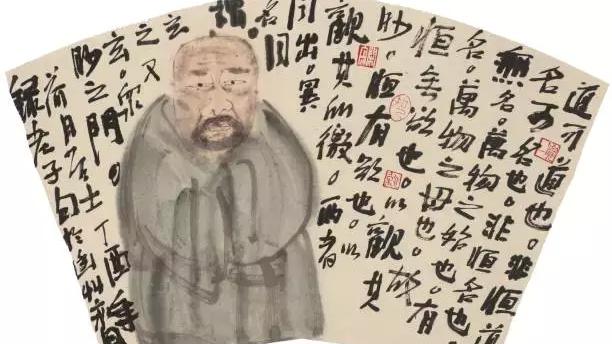 道可道也。非恒道
也。名可名也。非恒名也。
無名。萬物之始也。有
名。萬物之母也。故
恒無欲也。以觀其
妙。恒有欲也。以
觀其所徼。两者
同出。異
名同
謂。
玄
之又
玄。眾
妙之門。
荷月居士丁酉年
録老子句於